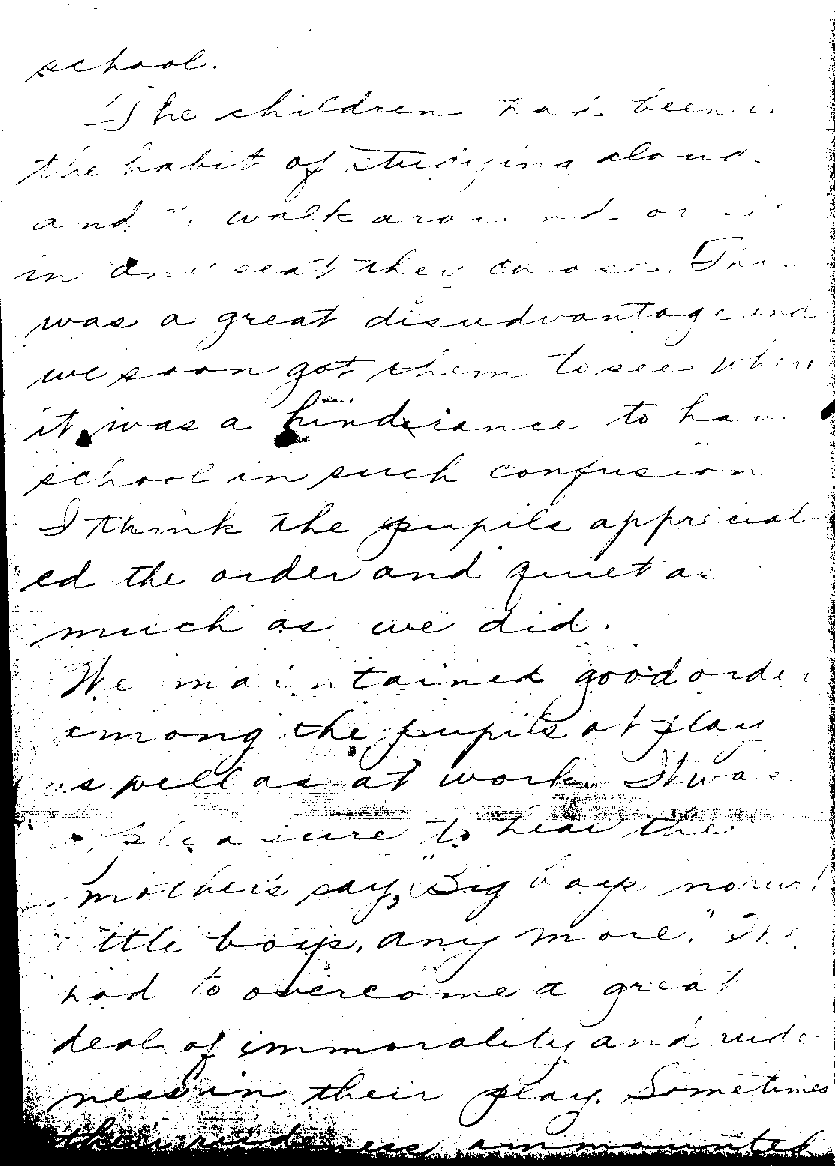 school.
The children had been in
the habit of studying aloud.
and walk around or
in any seat they choose. This
was a great disadvantage and
we soon got them to see where
it was a hindriance to have
school in such confusion
I think the pupils appreciat
ed the order and quiet as
much as we did.
We maintained good order
among the pupils at play
as well as at work. It was
pleasure to hear the
mothers say, "Big boys
little boys, any more." We
had to overcome a great
deal of immorality and rude
ness in their play. Sometimes
their rudeness ammounted